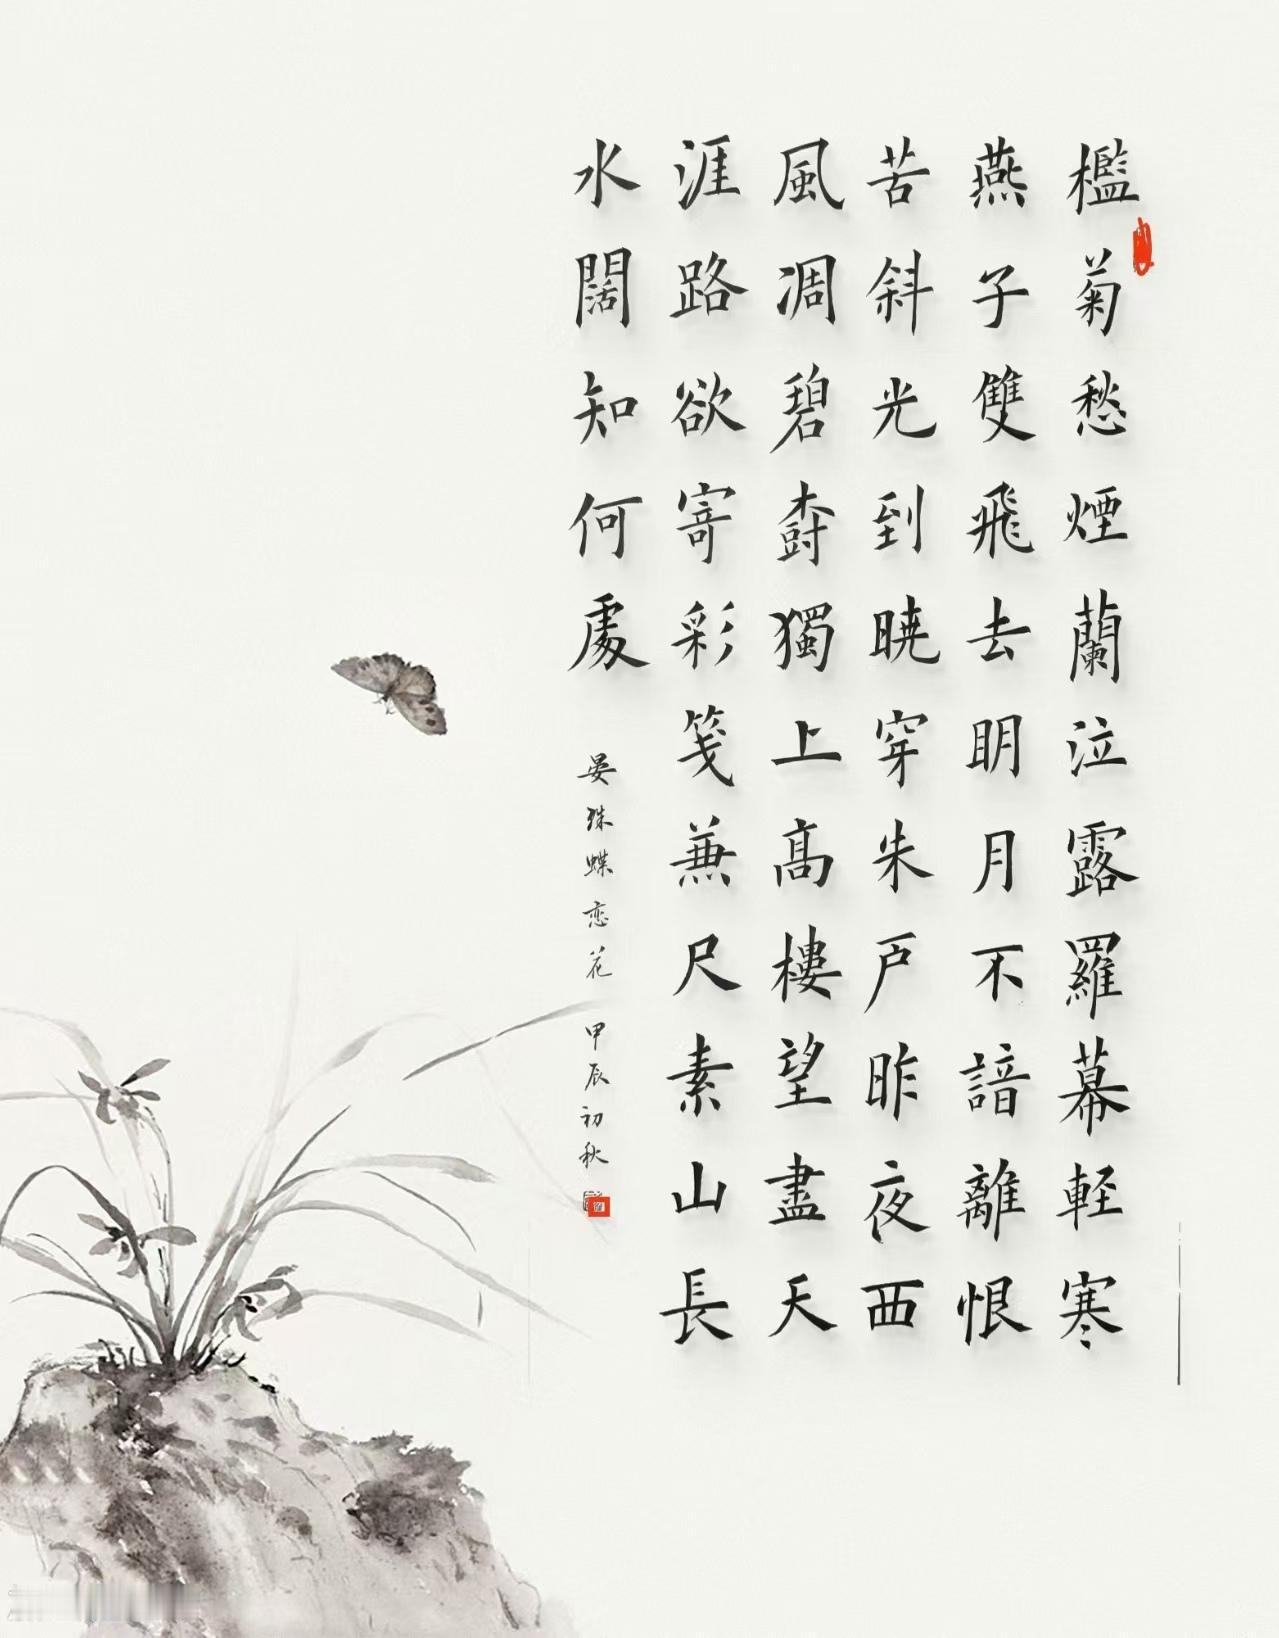 檻菊愁煙蘭泣露羅幕軽寒
燕子雙飛去明月不諳離恨
苦斜光到曉穿朱戶昨夜西
風凋碧尌獨上高樓望盡天
涯路欲寄彩箋兼尺素山長
水闊知何處
晏珠蝶恋花 甲辰初秋